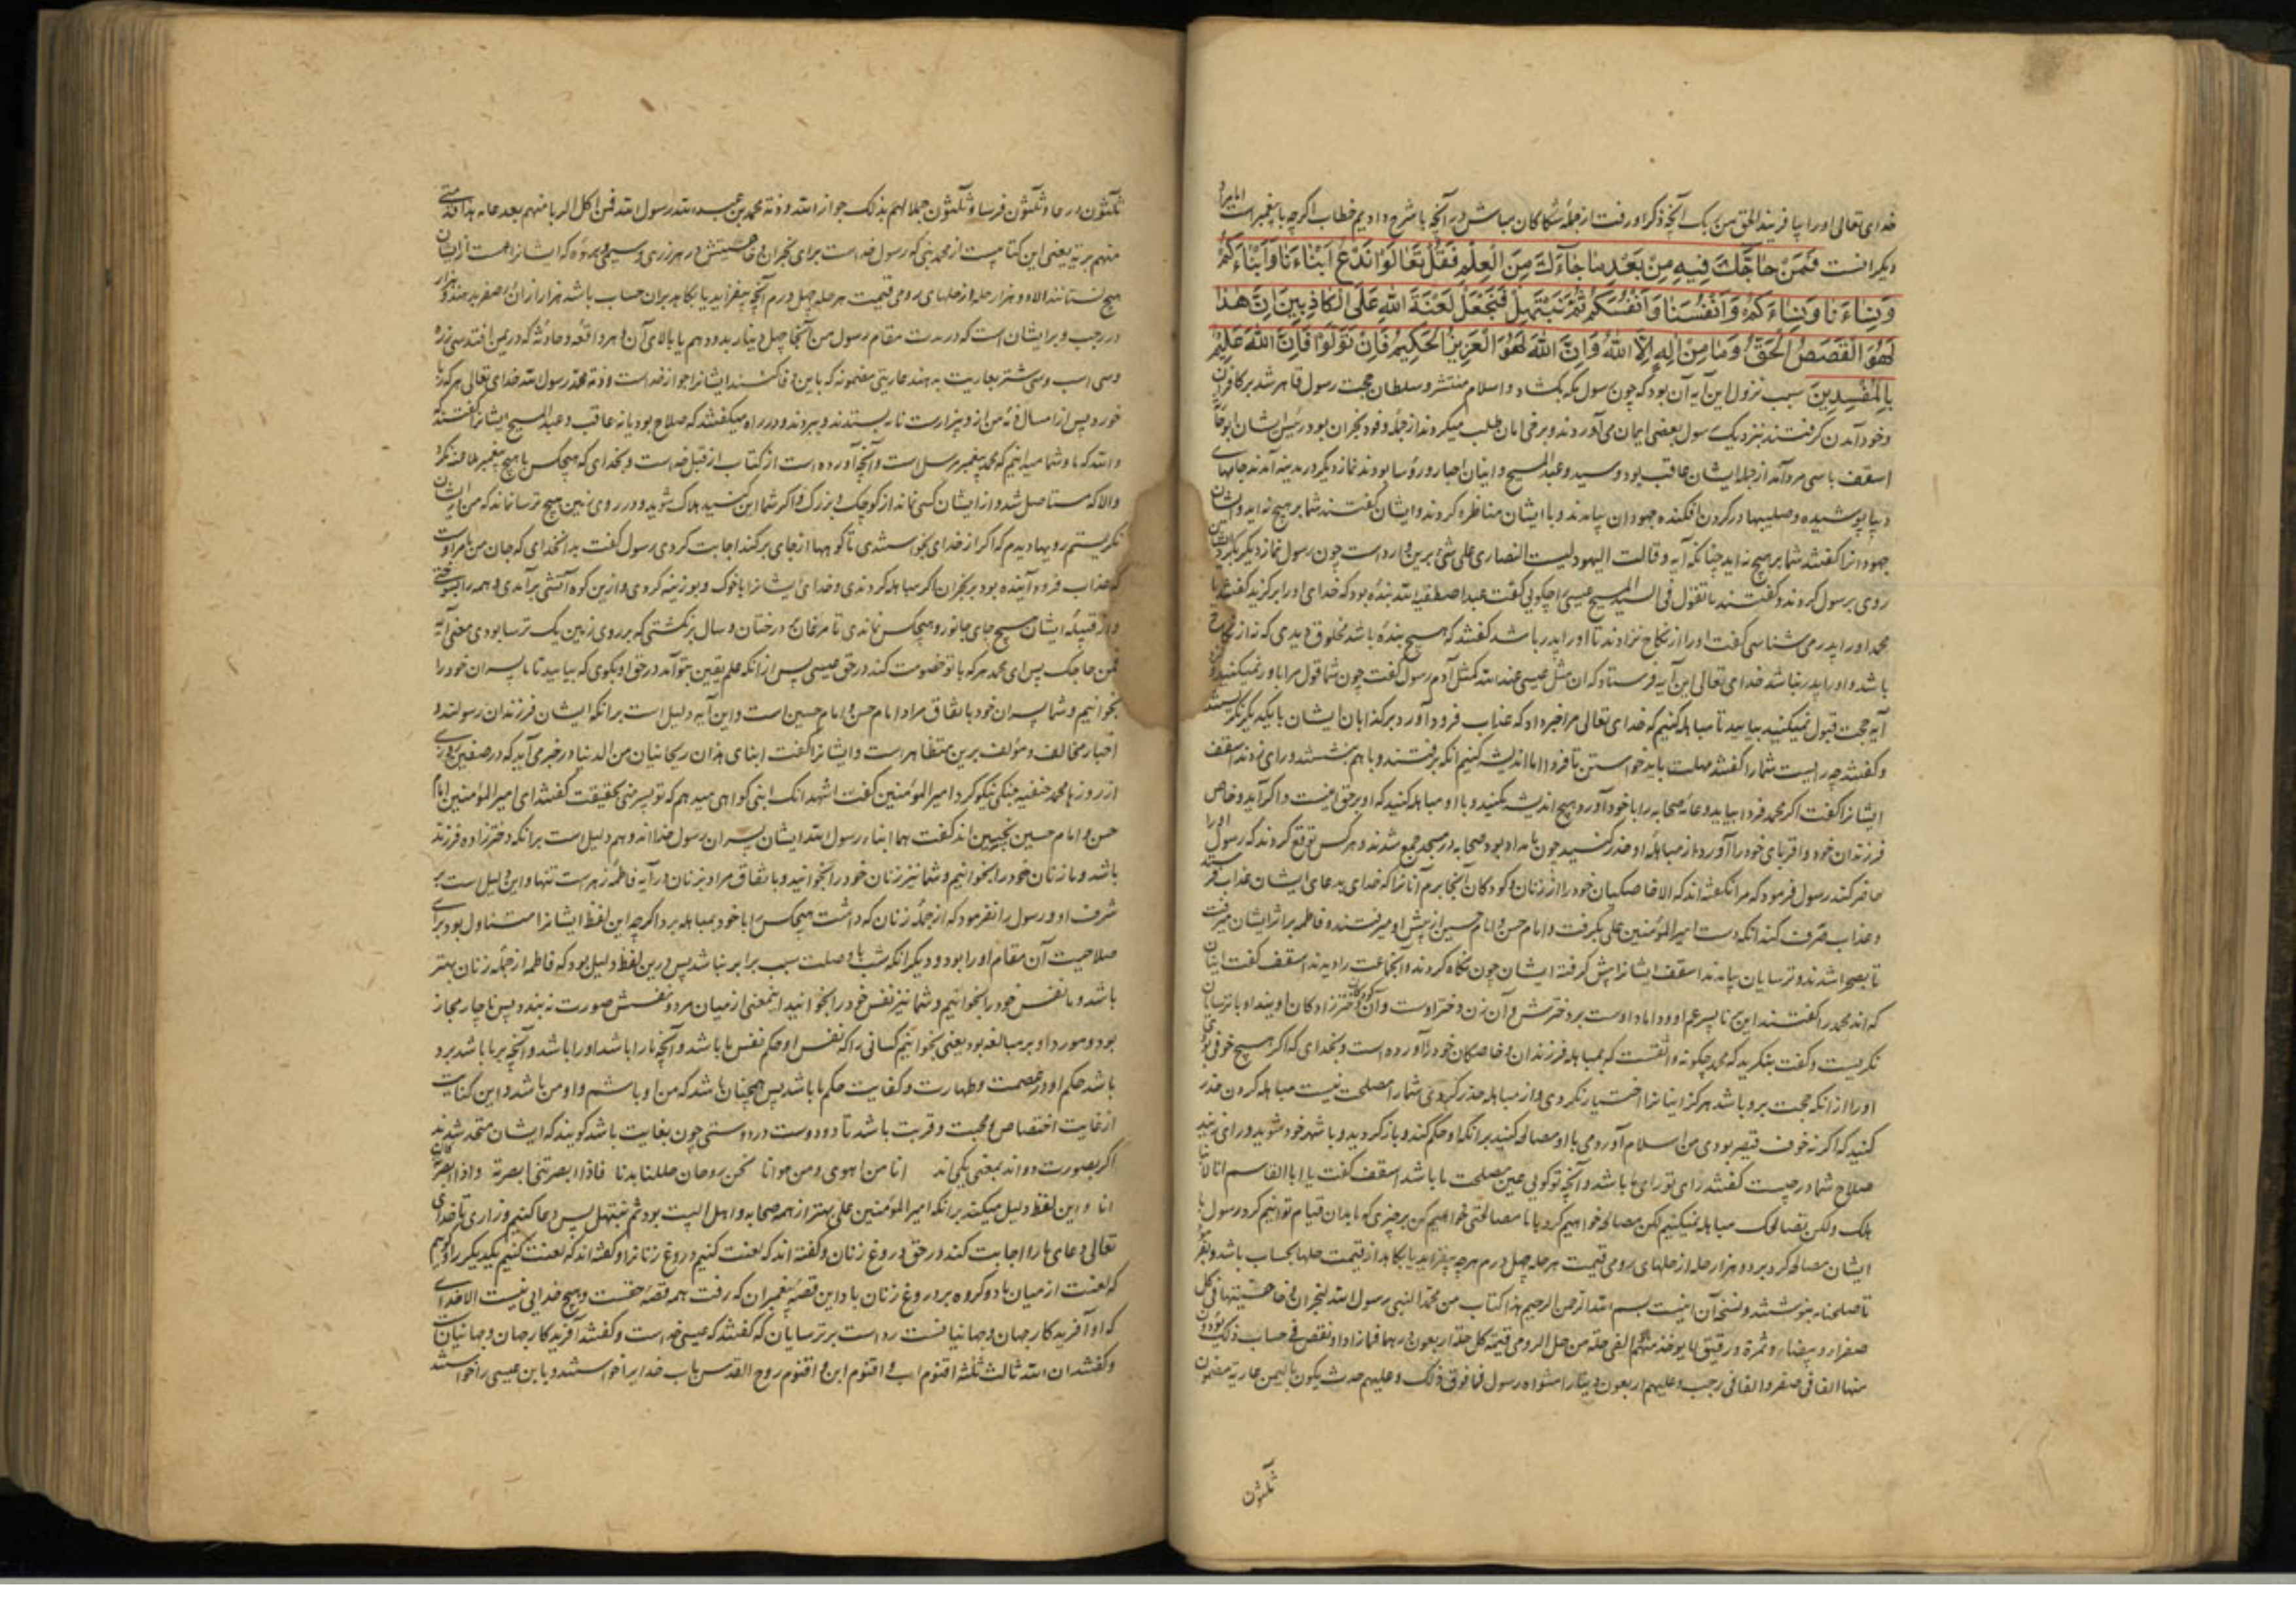 خدای تعالی اورا بیافرید الحق من ربک آنچه ذکر او رفت از جمله شکاکان مباش در آنچه با شرح دادیم خطاب اگرچه با پیغمبر است اما مراد
دیگرانست فَمَنْ حَاجَّكَ فِيهِ مِنْ بَعْدِ مَا جَاءَكَ مِنَ الْعِلْمِ فَقُلْ تَعَالَوْا نَدْعُ أَبْنَاءَنَا وَأَبْنَاءَكُمْ
وَنِسَاءَنَا وَنِسَاءَكُمْ وَأَنْفُسَنَا وَأَنْفُسَكُمْ ثُمَّ نَبْتَهِلْ فَنَجْعَلْ لَعْنَةَ اللَّهِ عَلَى الْكَاذِبِينَ إِنَّ هَذَا
لَهُوَ الْقَصَصُ الْحَقُّ وَمَا مِنْ إِلَهٍ إِلَّا اللَّهُ وَإِنَّ اللَّهَ لَهُوَ الْعَزِيزُ الْحَكِيمُ فَإِنْ تَوَلَّوْا فَإِنَّ اللَّهَ عَلِيمٌ
بِالْمُفْسِدِينَ سبب نزول این آیه آن بود که چون رسول مکه بکشاد و اسلام منتشر و سلطان حجت رسول قاهر شد بر کافران
وخود آمدن گرفتند نزدیک رسول بعضی ایمان می آوردند و برخی امان طلب میکردند از جمله وفود نجران بود رئیس ایشان ابوحارثه
اسقف با سی مرد آمد از جمله ایشان عاقب بود و سید و عبد المسیح و اینان احبار و رؤسا بودند نماز دیگر در مدینه آمدند جامهای
دیبا پوشیده و صلیبها در گردن افکنده جهودان بیامدند و با ایشان مناظره کردند و ایشان گفتند شما بر هیچ نه اید و ایشان
جهودانرا گفتند شما بر هیچ نه اید چنانکه آیه و قالت الیهود لیست النصاری علی شئ برین وارد است چون رسول نماز دیگر بکرد ایشان
روی برسول کردند و گفتند ما تقول فی السید المسیح عیسی را چگویی گفت عبد اصطفیه الله بندۀ بود که خدای اورا برگزید گفتند یا
محمد اورا پدر می شناسی گفت اورا از نکاح نزادند تا اورا پدر باشد گفتند که هیچ بندۀ باشد مخلوق دیدی که نه از نکاح
باشد و اورا پدر نباشد خدای تعالی این آیه فرستاد که ان مثل عیسی عند الله کمثل آدم رسول گفت چون شما قول مرا باور نمیکنید و
آیه حجت قبول نمیکنید بیایید تا مباهله کنیم که خدای تعالی مرا خبر داد که عذاب فرود آورد بر کذابان ایشان با یکدیگر نگریستند
و گفتند چه رایست شمارا گفتند مهلت باید خواستن تا فردا اما اندیشه کنیم آنکه برفتند و باهم بنشستند و رای زدند اسقف
ایشانرا گفت اگر محمد فردا بیاید و عامۀ صحابه را با خود آورد هیچ اندیشه مکنید و با او مباهله کنید که او بر حق نیست و اگر آید و خاص
فرزندان خود و اقربای خود را آورد از مباهلۀ او حذر کنید چون بامداد بود صحابه در مسجد جمع شدند و هر کس توقع کردند که رسول اورا
حاضر کند رسول فرمود که مرا نگفته اند که الا خاصگیان خود را از زنان و کودکان آنجا برم آنانرا که خدای بدعای ایشان عذاب فرستد
و عذاب صرف کند آنکه دست امیر المؤمنین علی بگرفت و امام حسن و امام حسین از پیش او میرفتند و فاطمه بر اثر ایشان میرفت
تا بصحرا شدند و ترسایان بیامدند اسقف ایشانرا پیش گرفته ایشان چون نگاه کردند و آنجماعت را دیدند اسقف گفت اینان
که اند محمد را گفتند این جوان پسر عم او و داماد اوست بر دخترش و آن زن دختر اوست و آن کودکان دختر زادگان اویند او با ترسایان
نگریست و گفت بنگرید که محمد چگونه واثقست که بمباهله فرزندان و خاصگان خود را آورده است و بخدای که اگر هیچ خوفی بودی
اورا از آنکه حجت برو باشد هرگز اینانرا اختیار نکردی و از مباهله حذر کردی شمارا مصلحت نیست مباهله کردن حذر
کنید که اگر نه خوف قیصر بودی من اسلام آوردمی با او مصالحه کنید بر آنکه او حکم کند و بازگردید و با شهر خود شوید و رای زنید تا
صلاح شما در چیست گفتند رای تو رای ما باشد و آنچه تو گویی عین مصلحت ما باشد اسقف گفت یا ابا القاسم انا لا نباهلک
ولکن نصالحک مباهله نمیکنیم لکن مصالحه خواهیم کرد با ما مصالحتی خواهیم کن بر چیزی که ما بدان قیام توانیم کرد رسول با
ایشان مصالحه کرد بر دو هزار حله از حلهای رومی قیمت هر حله چهل درم هرچه بیفزاید یا بکاهد از قیمت حلها بحساب باشد و بفرمود
تا صلحنامه بنوشتند و نسخه آن اینست بسم الله الرحمن الرحیم هذا کتاب من محمد النبی رسول الله لنجران و حاشیتها فی کل
صفراء و بیضاء و ثمرة و رقیق لا یوخذ منهم الفی حلة من حلل الرومی قیمة کل حلة اربعون درهما فما زاد او نقص فی حساب ذلک یؤدون
منها الفا فی صفر و الفا فی رجب و علیهم اربعون دینارا مثواة رسول فما فوق ذلک و علیهم حدث یکون بالیمن عاریة مضمونة
ثلثون
ثلثون درعا و ثلثون فرسا و ثلثون جملا لهم بذلک جوار الله و ذمة محمد بن عبد الله رسول الله فمن اکل الربا منهم بعد عامه هذا فذمتی
منهم بریة یعنی این کتابیست از محمد نبی که رسول خداست برای نجران و حاشیتش در هر زری و سیمی و میوۀ که ایشانرا هست از ایشان
هیچ نستانند الا دو هزار حله از حلهای رومی قیمت هر حله چهل درم آنچه بیفزاید یا بکاهد بر آن حساب باشد هزار از آن بصفر بدهند و هزار
در رجب و بر ایشان است که در مدت مقام رسول من آنجا چهل دینار بدهم یا بالای آن و هر واقعه و حادثه که در یمن افتد سی زره
و سی اسب و سی شتر بعاریت بدهند عاریتی مضمونه که باین وفا کنند ایشانرا جوار خداست و ذمه محمد رسول الله خدای تعالی هر که ربا
خورد پس از امسال ذمه من ازو بیزارست نامه بستدند و ببردند و در راه میگفتند که صلاح بود یا نه عاقب و عبد المسیح ایشانرا گفتند که
والله که ما و شما میدانیم که محمد پیغمبر مرسل است و آنچه آورده است از کتاب از قبل خداست و بخدای که هیچکس با هیچ پیغمبر ملاعنه نکرد
والا که مستاصل شد و از ایشان کسی نماند از کوچک و بزرگ و اگر شما این کنید هلاک شوید و در روی زمین هیچ ترسا نماند که من در ایشان
نگریستم رویها دیدم که اگر از خدای بخواستندی تا کوهها از جای برکند اجابت کردی رسول گفت بدان خدای که جان من بامر اوست
که عذاب فرود آینده بود بر نجران اگر مباهله کردندی و خدای ایشانرا با خوک و بوزینه کردی و ازین کوه آتشی برآمدی و همه را بسوختی
و از قبیله ایشان هیچ جای جانور و هیچکس نماندی تا مرغان بر درختان و سال برنگشتی که بر روی زمین یک ترسا بودی معنی آیه
فمن حاجک پس ای محمد هر که با تو خصومت کند در حق عیسی پس از آنکه علم یقین بتو آمد در حق او بگوی که بیایید تا ما پسران خود را
بخوانیم و شما پسران خود باتفاق مراد امام حسن و امام حسین است و این آیه دلیل است بر آنکه ایشان فرزندان رسولند و
اخبار مخالف و مؤلف برین متظاهر است و ایشانرا گفت ابنای هذان ریحانیان من الدنیا و در خبر می آید که در صفین روزی
از روزها محمد حنفیه جنگی نیکو کرد امیر المؤمنین گفت اشهد انک ابنی گواهی میدهم که تو پسر منی بحقیقت گفتند ای امیر المؤمنین امام
حسن و امام حسین نچنین اند گفت هما ابناء رسول الله ایشان پسران رسول خدا اند و هم دلیل است بر آنکه دخترزاده فرزند
باشد و ما زنان خود را بخوانیم و شما نیز زنان خود را بخوانید و باتفاق مراد بزنان در آیه فاطمۀ زهراست تنها و این دلیل است بر
شرف او و رسول را نفرمود که از جمله زنان که داشت هیچکس را با خود بمباهله برد اگرچه این لفظ ایشانرا متناول بود برای
صلاحیت آن مقام اورا بود و دیگر آنکه شب با وصلت سبب برابر نباشد پس درین لفظ دلیل بود که فاطمه از جمله زنان بهتر
باشد و ما نفس خود را بخوانیم و شما نیز نفس خود را بخوانید اینمعنی از میان مرد و نفسش صورت نبندد پس ناچار مجاز
بود و مورد او بر مبالغه بود یعنی بخوانیم کسانی را که نفس او حکم نفس ما باشد و آنچه مارا باشد اورا باشد و آنچه بر ما باشد برو
باشد حکم او در عصمت و طهارت و کفایت حکم ما باشد پس همچنان باشد که من او باشم و او من باشد و این کنایت
از غایت اختصاص و محبت و قربت باشد تا دو دوست در دوستی چون بغایت باشد گویند که ایشان متحد شدند
اگر بصورت دو اند بمعنی یکی اند انا من اهوی و من اهوی انا نحن روحان حللنا بدنا فاذا ابصرتنی ابصرته و اذا ابصرته کان
انا و این لفظ دلیل میکند بر آنکه امیر المؤمنین علی بهتر از همه صحابه و اهل البیت بود ثم نبتهل پس دعا کنیم و زاری تا خدای
تعالی دعای مارا اجابت کند در حق دروغ زنان و گفته اند که لعنت کنیم دروغ زنانرا و گفته اند که لعنت کنیم یکدیگر را و گوییم
که لعنت از میان ما دو گروه بر دروغ زنان باد این قصۀ پیغمبران که رفت همه قصۀ حقست و هیچ خدایی نیست الا خدای
که او آفریدگار جهان و جهانیانست رد است بر ترسایان که گفتند که عیسی خداست و گفتند آفریدگار جهان و جهانیان
و گفتند ان الله ثالث ثلثه اقنوم اب و اقنوم ابن و اقنوم روح القدس باب خدایرا خواستند و بابن عیسی را خواستند